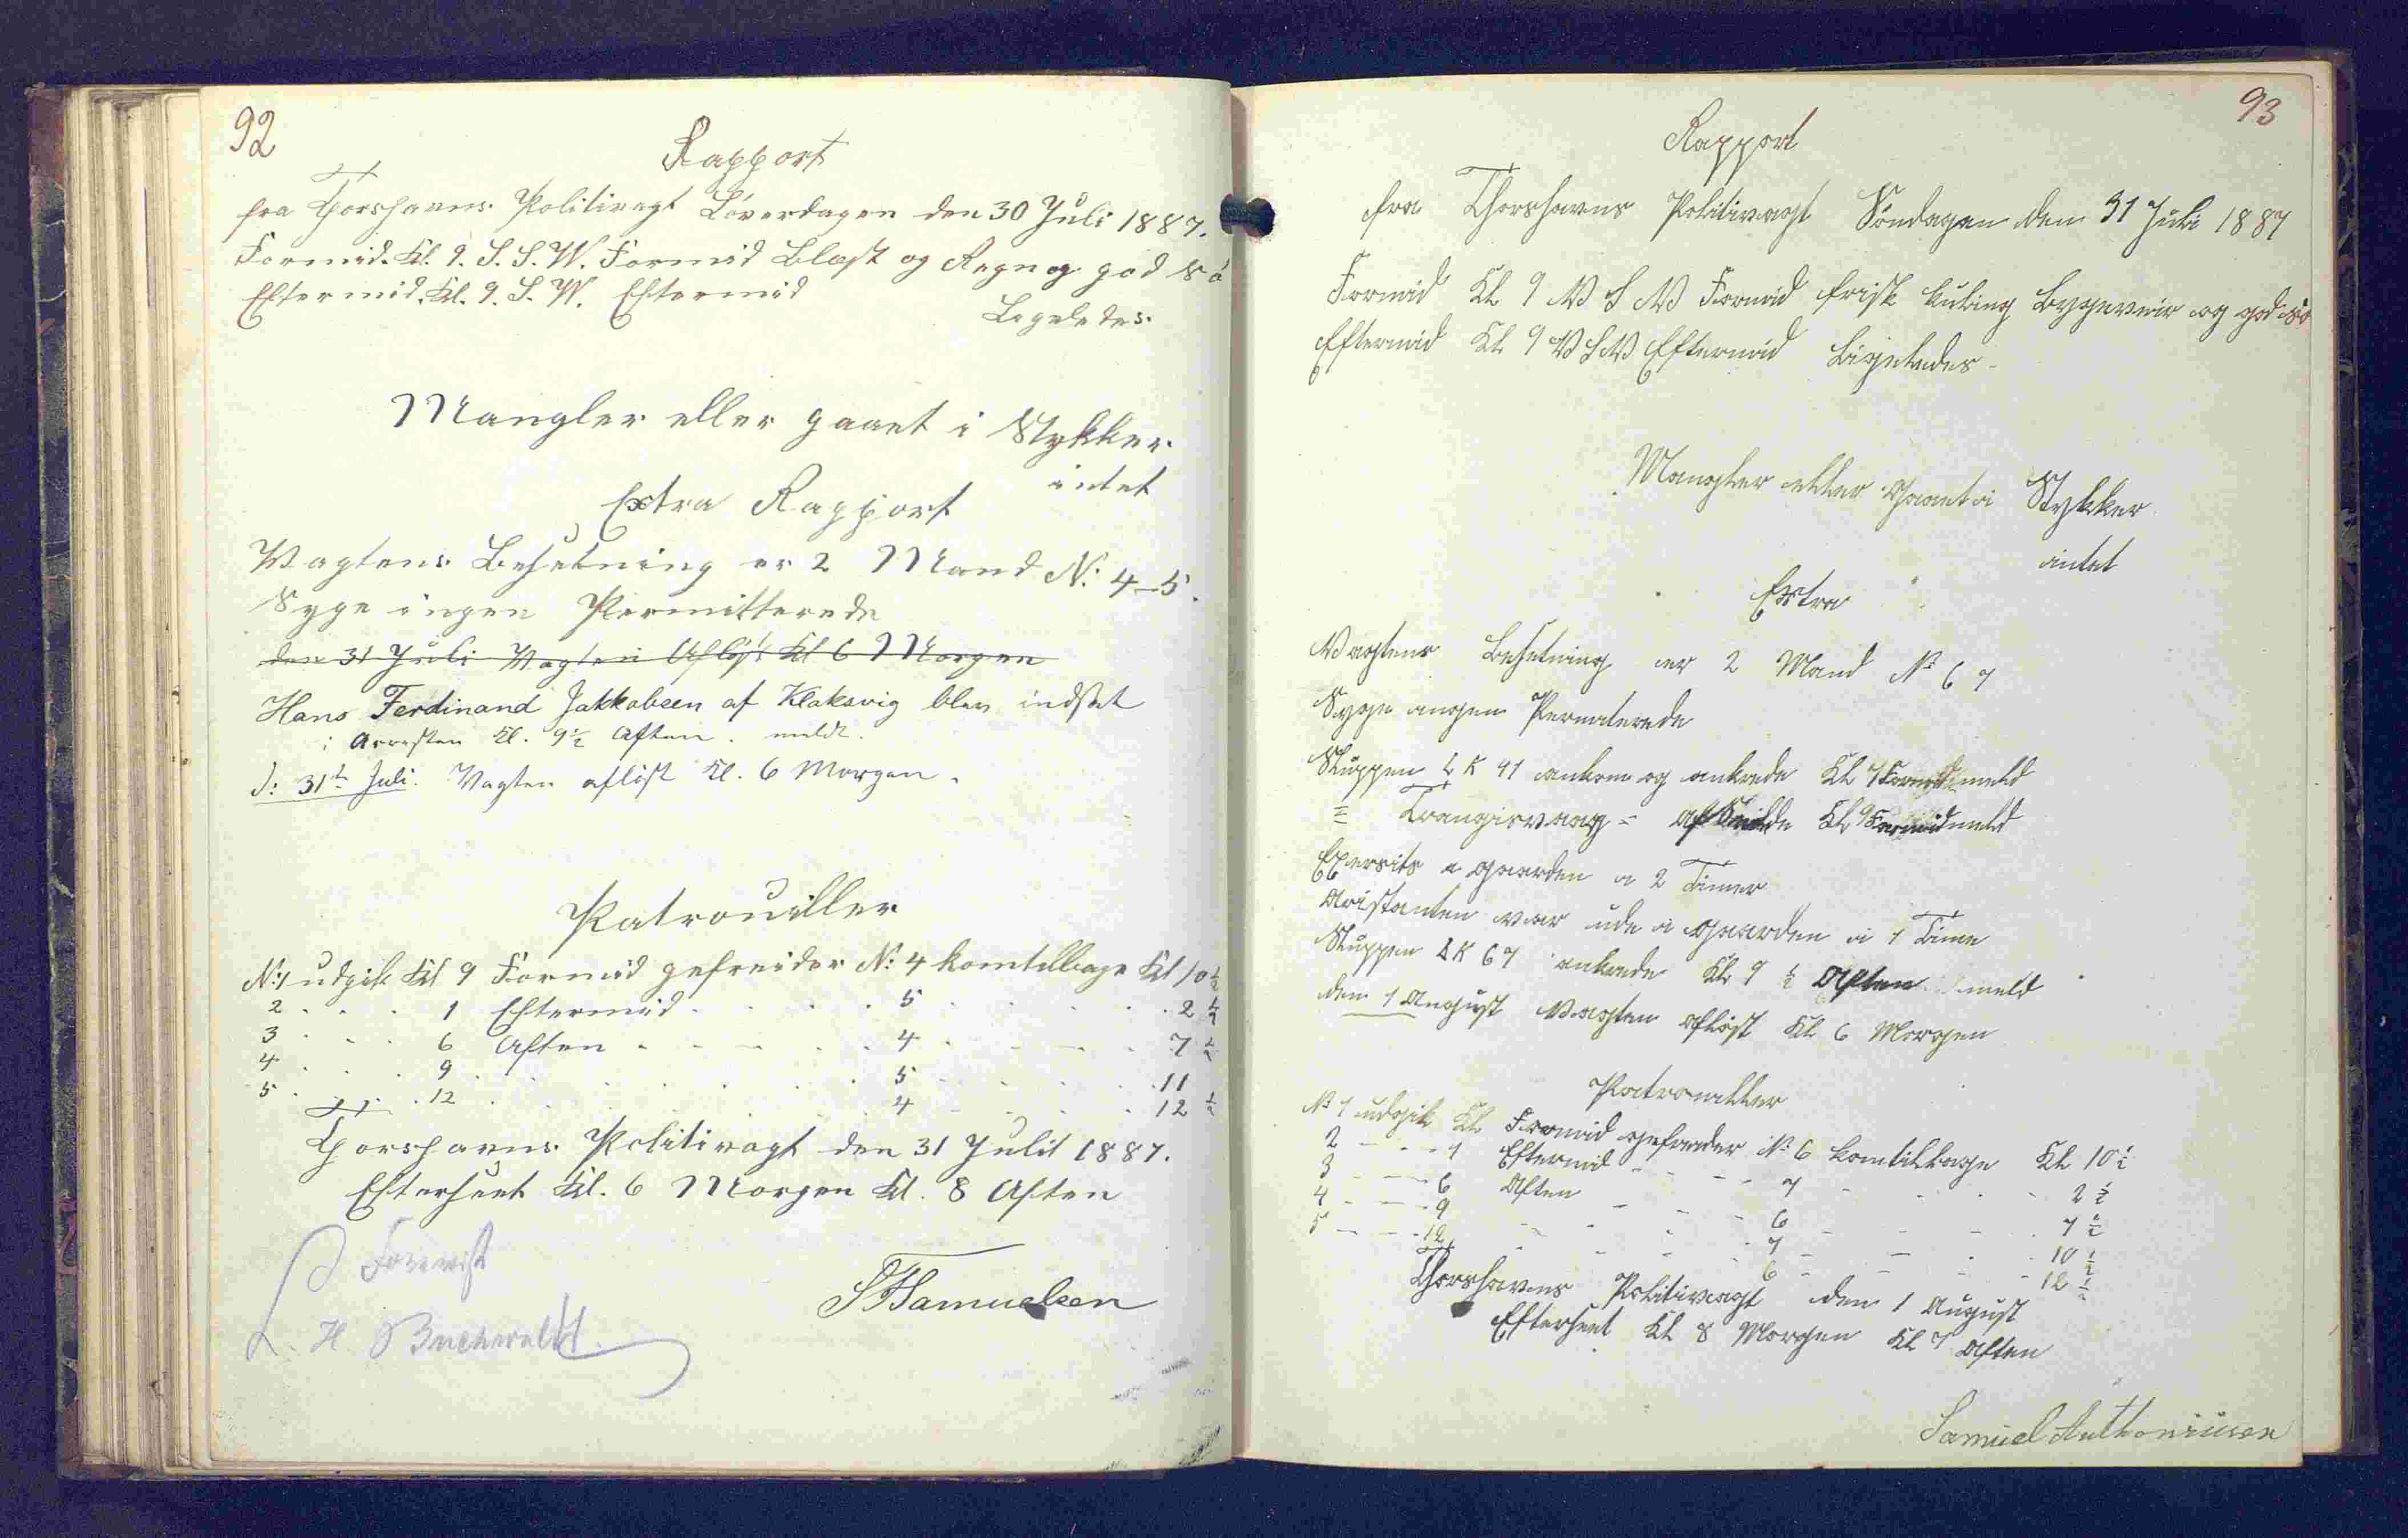 92
Rapport
fra Thorshavns Politivagt Löverdagen den 30 Juli 1887.
Formid. Kl. 9. S. S. W. Formid Blæst og Regn og god Sö
Eftermid. Kl. 9. S. W. Eftermid
Ligeledes
Mangler eller gaaet i Stykker
intet
Extra Rapport
Vagtens Besetning er 2 Mand N: 4-5.
Syge ingen Permitterede
den 31 Juli Vagten Aflöst Kl 6 Morgen
Hans Ferdinand Jakkobsen af Klaksvig blev indsat
i Arresten Kl. 9½ Aften. meldt.
d: 31te Juli. Vagten aflöst Kl. 6 Morgen.
Patrouiller
N:1 udgik Kl 9 Formid gefreider N: 4 kom tilbage Kl 10½
2 . . . 1 Eftermid . . . 5 . . . 2½
3 . . . 6 Aften . . . 4 . . . 7½
4 . . . 9 . . . 5 . . . 11
5 . . . 12 . . . 4 . . . 12½
Thorshavns Politivagt den 31 Julit 1887.
Efterseet Kl. 6 Morgen Kl. 8 Aften
Forevist
H. Buchwaldt
Samuelsen
93
Rapport
fra Thorshavns Politivagt Söndagen den 31 Juli 1887
Formid Kl 9 V S V Formid frisk kuling Bygeveir og god Sö
Eftermid Kl 9 V S V Eftermid Ligeledes
Mangler eller Gaaet i Stykker
intet
Extra
Vagtens Besetning er 2 Mand No 6 7
Syge ingen Permiterede
Sluppen L K 41 ankom og ankrede Kl 7 Formid meld
= Trangisvaag = Kl 9 Formid meld
Exersits i gaarden i 2 Timer
Aristanten var ude i Gaarden i 1 Time
Sluppen L K 67 ankrede Kl 9 ½ Aften meld
den 1 August Vagten aflöst Kl 6 Morgen
Patrouiller
No 1 udgik Kl Formid gefreider No 6 kom tilbage Kl 10½
2 - - - 1 Eftermid - - - 7 - - - 2½
3 - - - 6 Aften - - - 6 - - - 7½
4 - - - 9 - - - 7 - - - 10½
5 - - - 12 - - - 6 - - - 12½
Thorshavns Politivagt den 1 August
Efterseet Kl 8 Morgen Kl 7 Aften
Samuel Anthoniusen